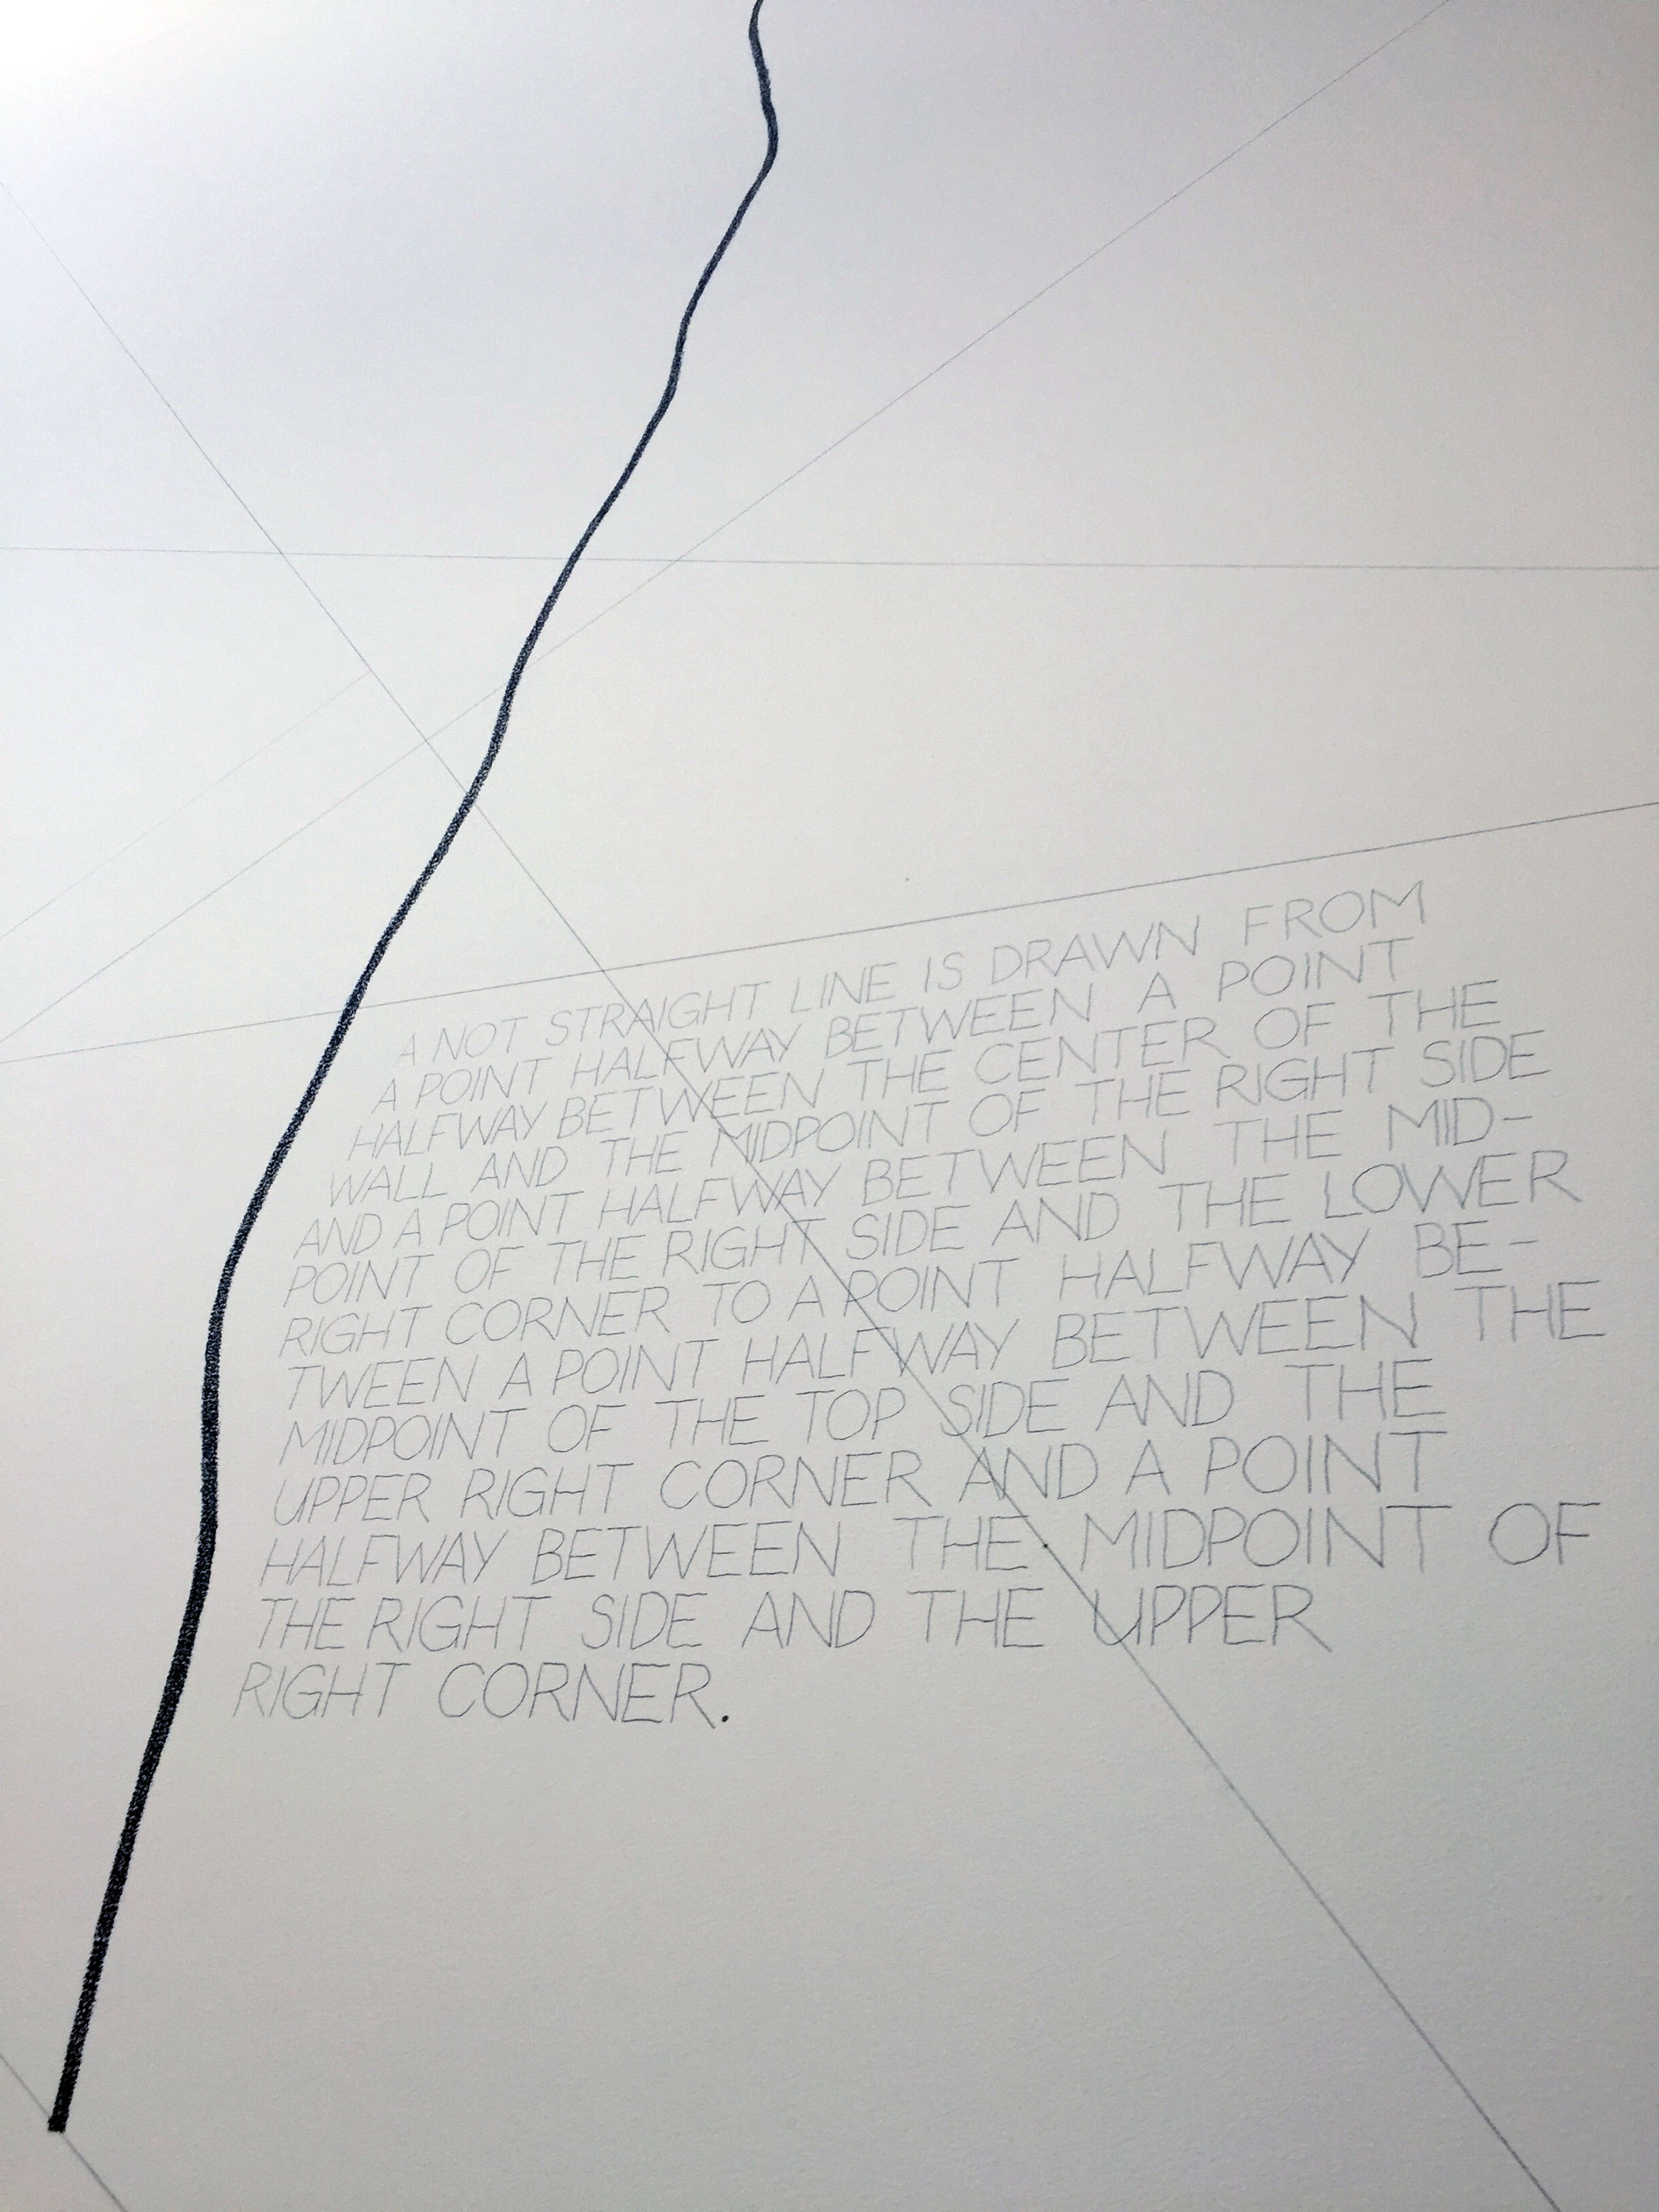 A NOT STRAIGHT LINE IS DRAWN FROM
A POINT HALFWAY BETWEEN A POINT
HALFWAY BETWEEN THE CENTER OF THE
WALL AND THE MIDPOINT OF THE RIGHT SIDE
AND A POINT HALFWAY BETWEEN THE MID-
POINT OF THE RIGHT SIDE AND THE LOWER
RIGHT CORNER TO A POINT HALFWAY BE-
TWEEN A POINT HALFWAY BETWEEN THE
MIDPOINT OF THE TOP SIDE AND THE
UPPER RIGHT CORNER AND A POINT
HALFWAY BETWEEN THE MIDPOINT OF
THE RIGHT SIDE AND THE UPPER
RIGHT CORNER.